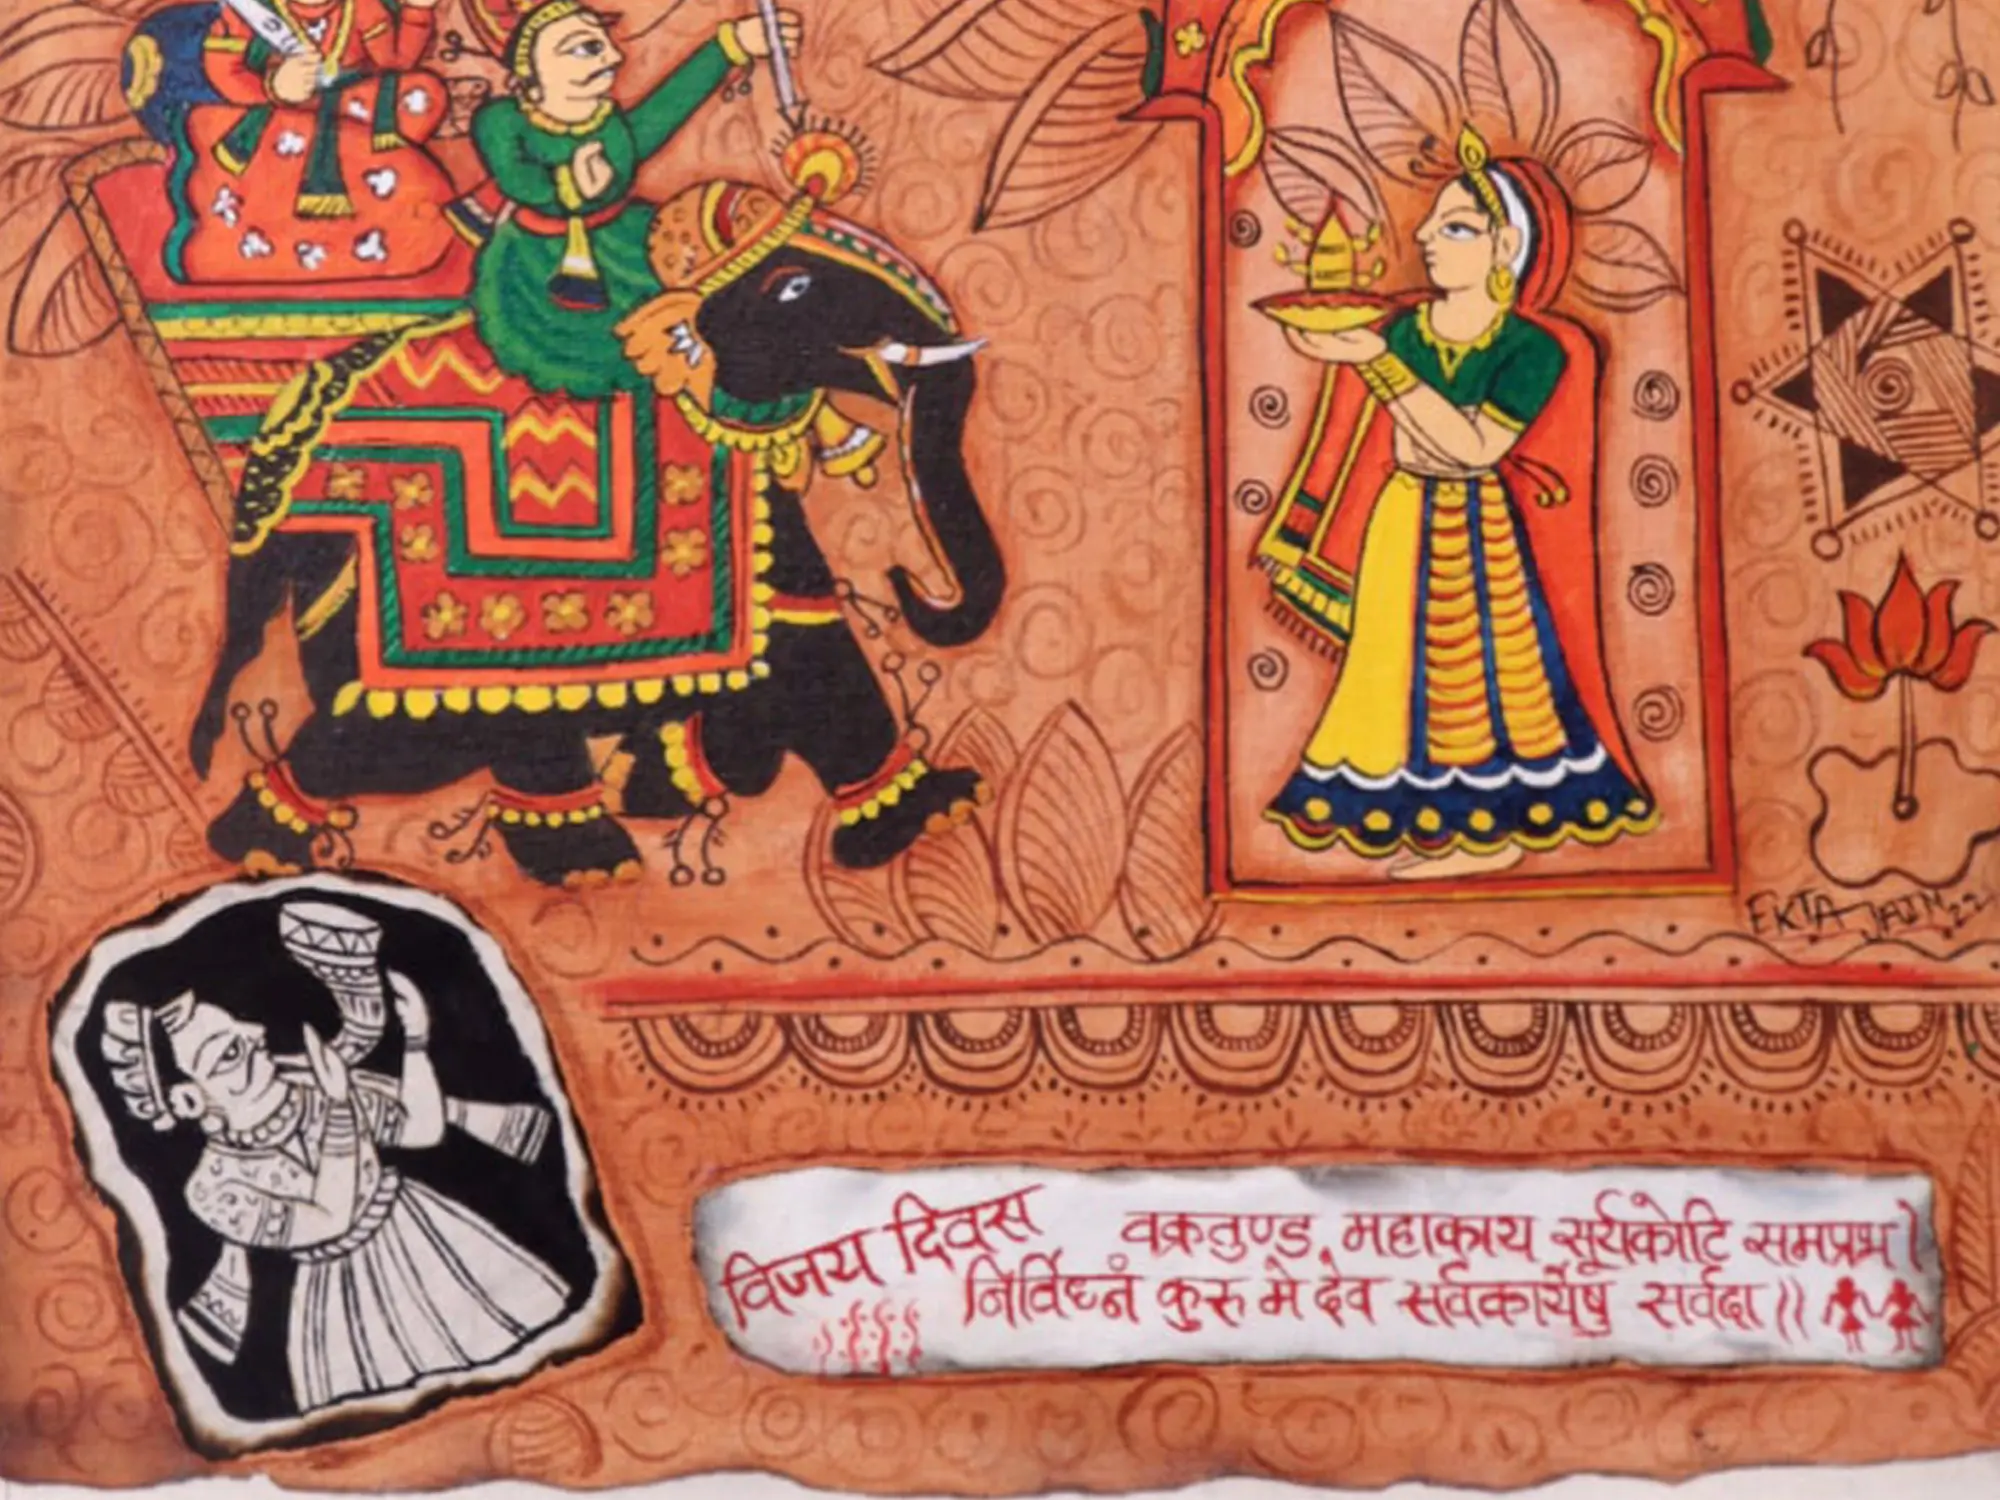 EKTA JAIN 22
विजय दिवस
वक्रतुण्ड महाकाय सूर्यकोटि समप्रभ।
निर्विघ्नं कुरु मे देव सर्वकार्येषु सर्वदा॥